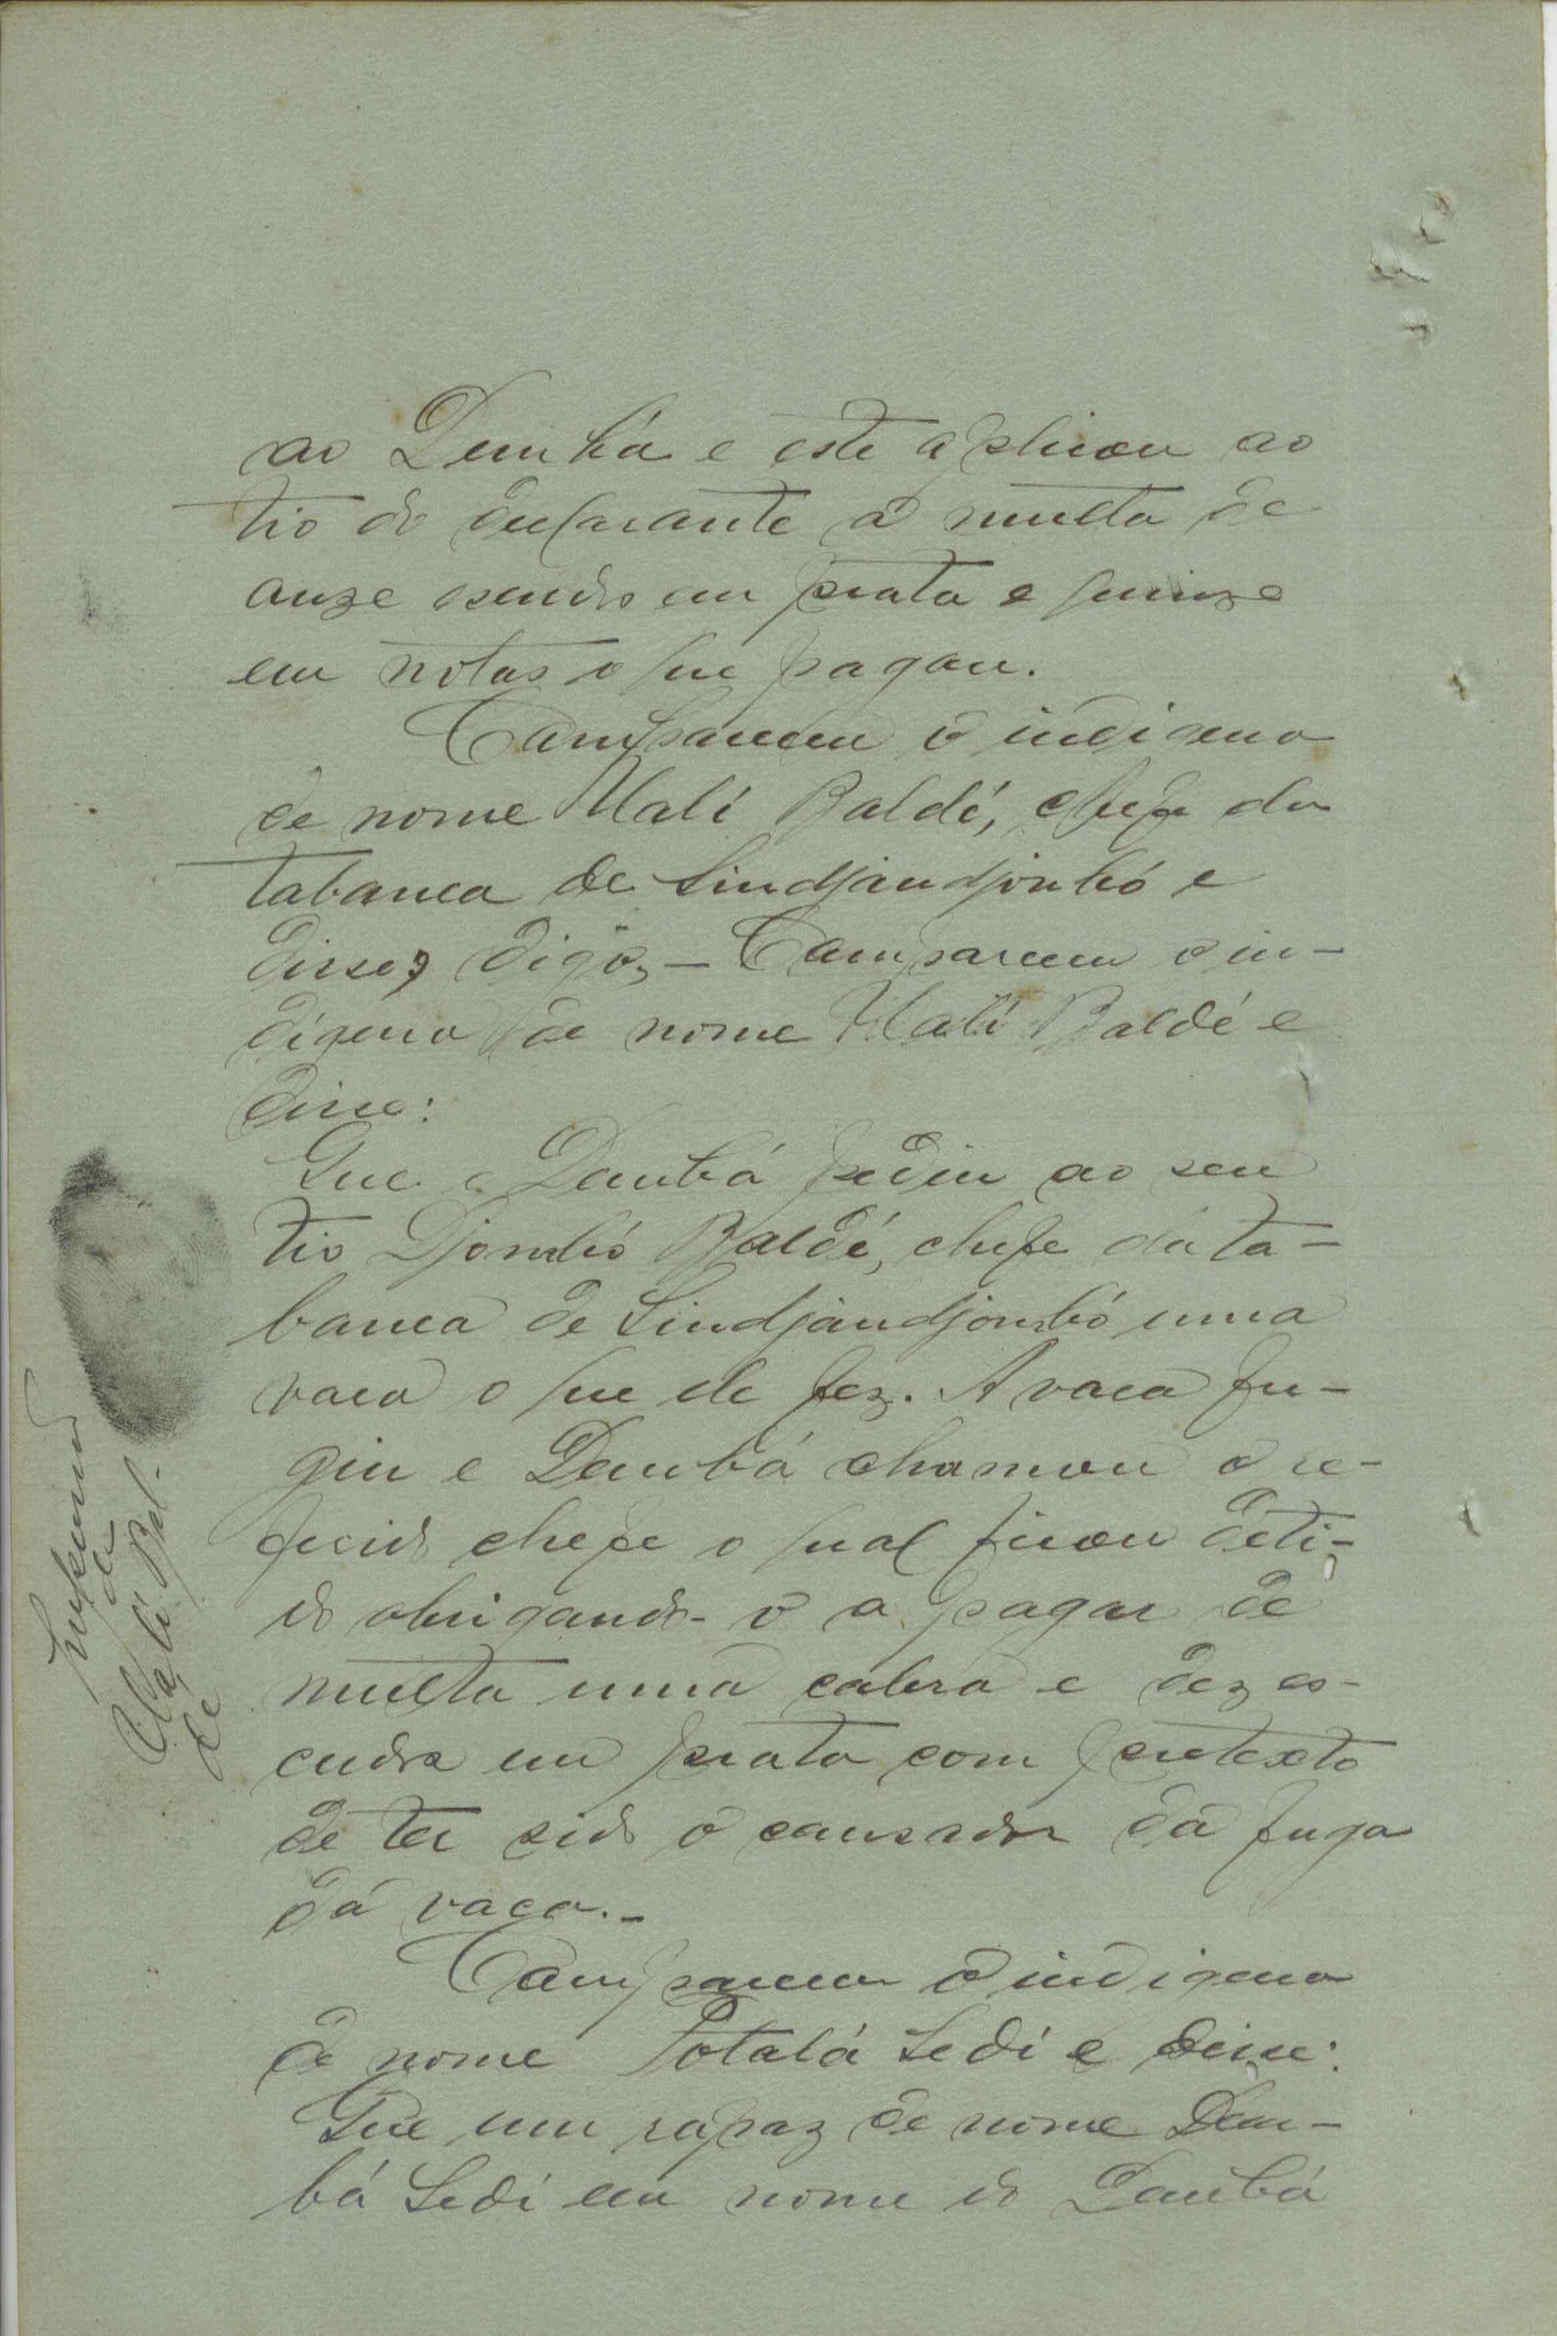 ao Dembá e este aplicou ao
tio do declarante a multa de
onze escudos em prata e quinze
em notas o que pagou.
Compareceu o indigena
de nome Mali Baldé, chefe da
tabanca de Sindjandjombó e
disse, digo, — Compareceu o in-
digena de nome Mali Baldé e
disse:
Que o Dembá pediu ao seu
tio Djombó Baldé, chefe da ta-
banca de Sindjandjombó uma
vaca o que ele fez. A vaca fu-
giu e Dembá chamou o re-
ferido chefe o qual ficou deti-
do obrigando-o a pagar de
multa uma cabra e dez es-
cudos em prata com pretexto
de ter sido o causador da fuga
da vaca.-
Compareceu o indigena
de nome Potalá Sedi e disse:
Que um rapaz de nome Dem-
bá Sedi em nome do Dembá
Impressão
de
Mali Bal-
dé